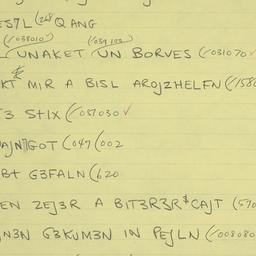 EST7L (268 Q ANG
(/038010) (/039100
LUNAKET UN BORVES (/031070 ✓
KT MIR A BISL AROJZHELFN (/1580
T3 STIX (/051030 ✓
AJN GOT (047 (002
BT G3FALN (620
EN ZEJ3R A BIT3R3R CAJT (570
N3N G3KUM3N IN PEJLN (/008080